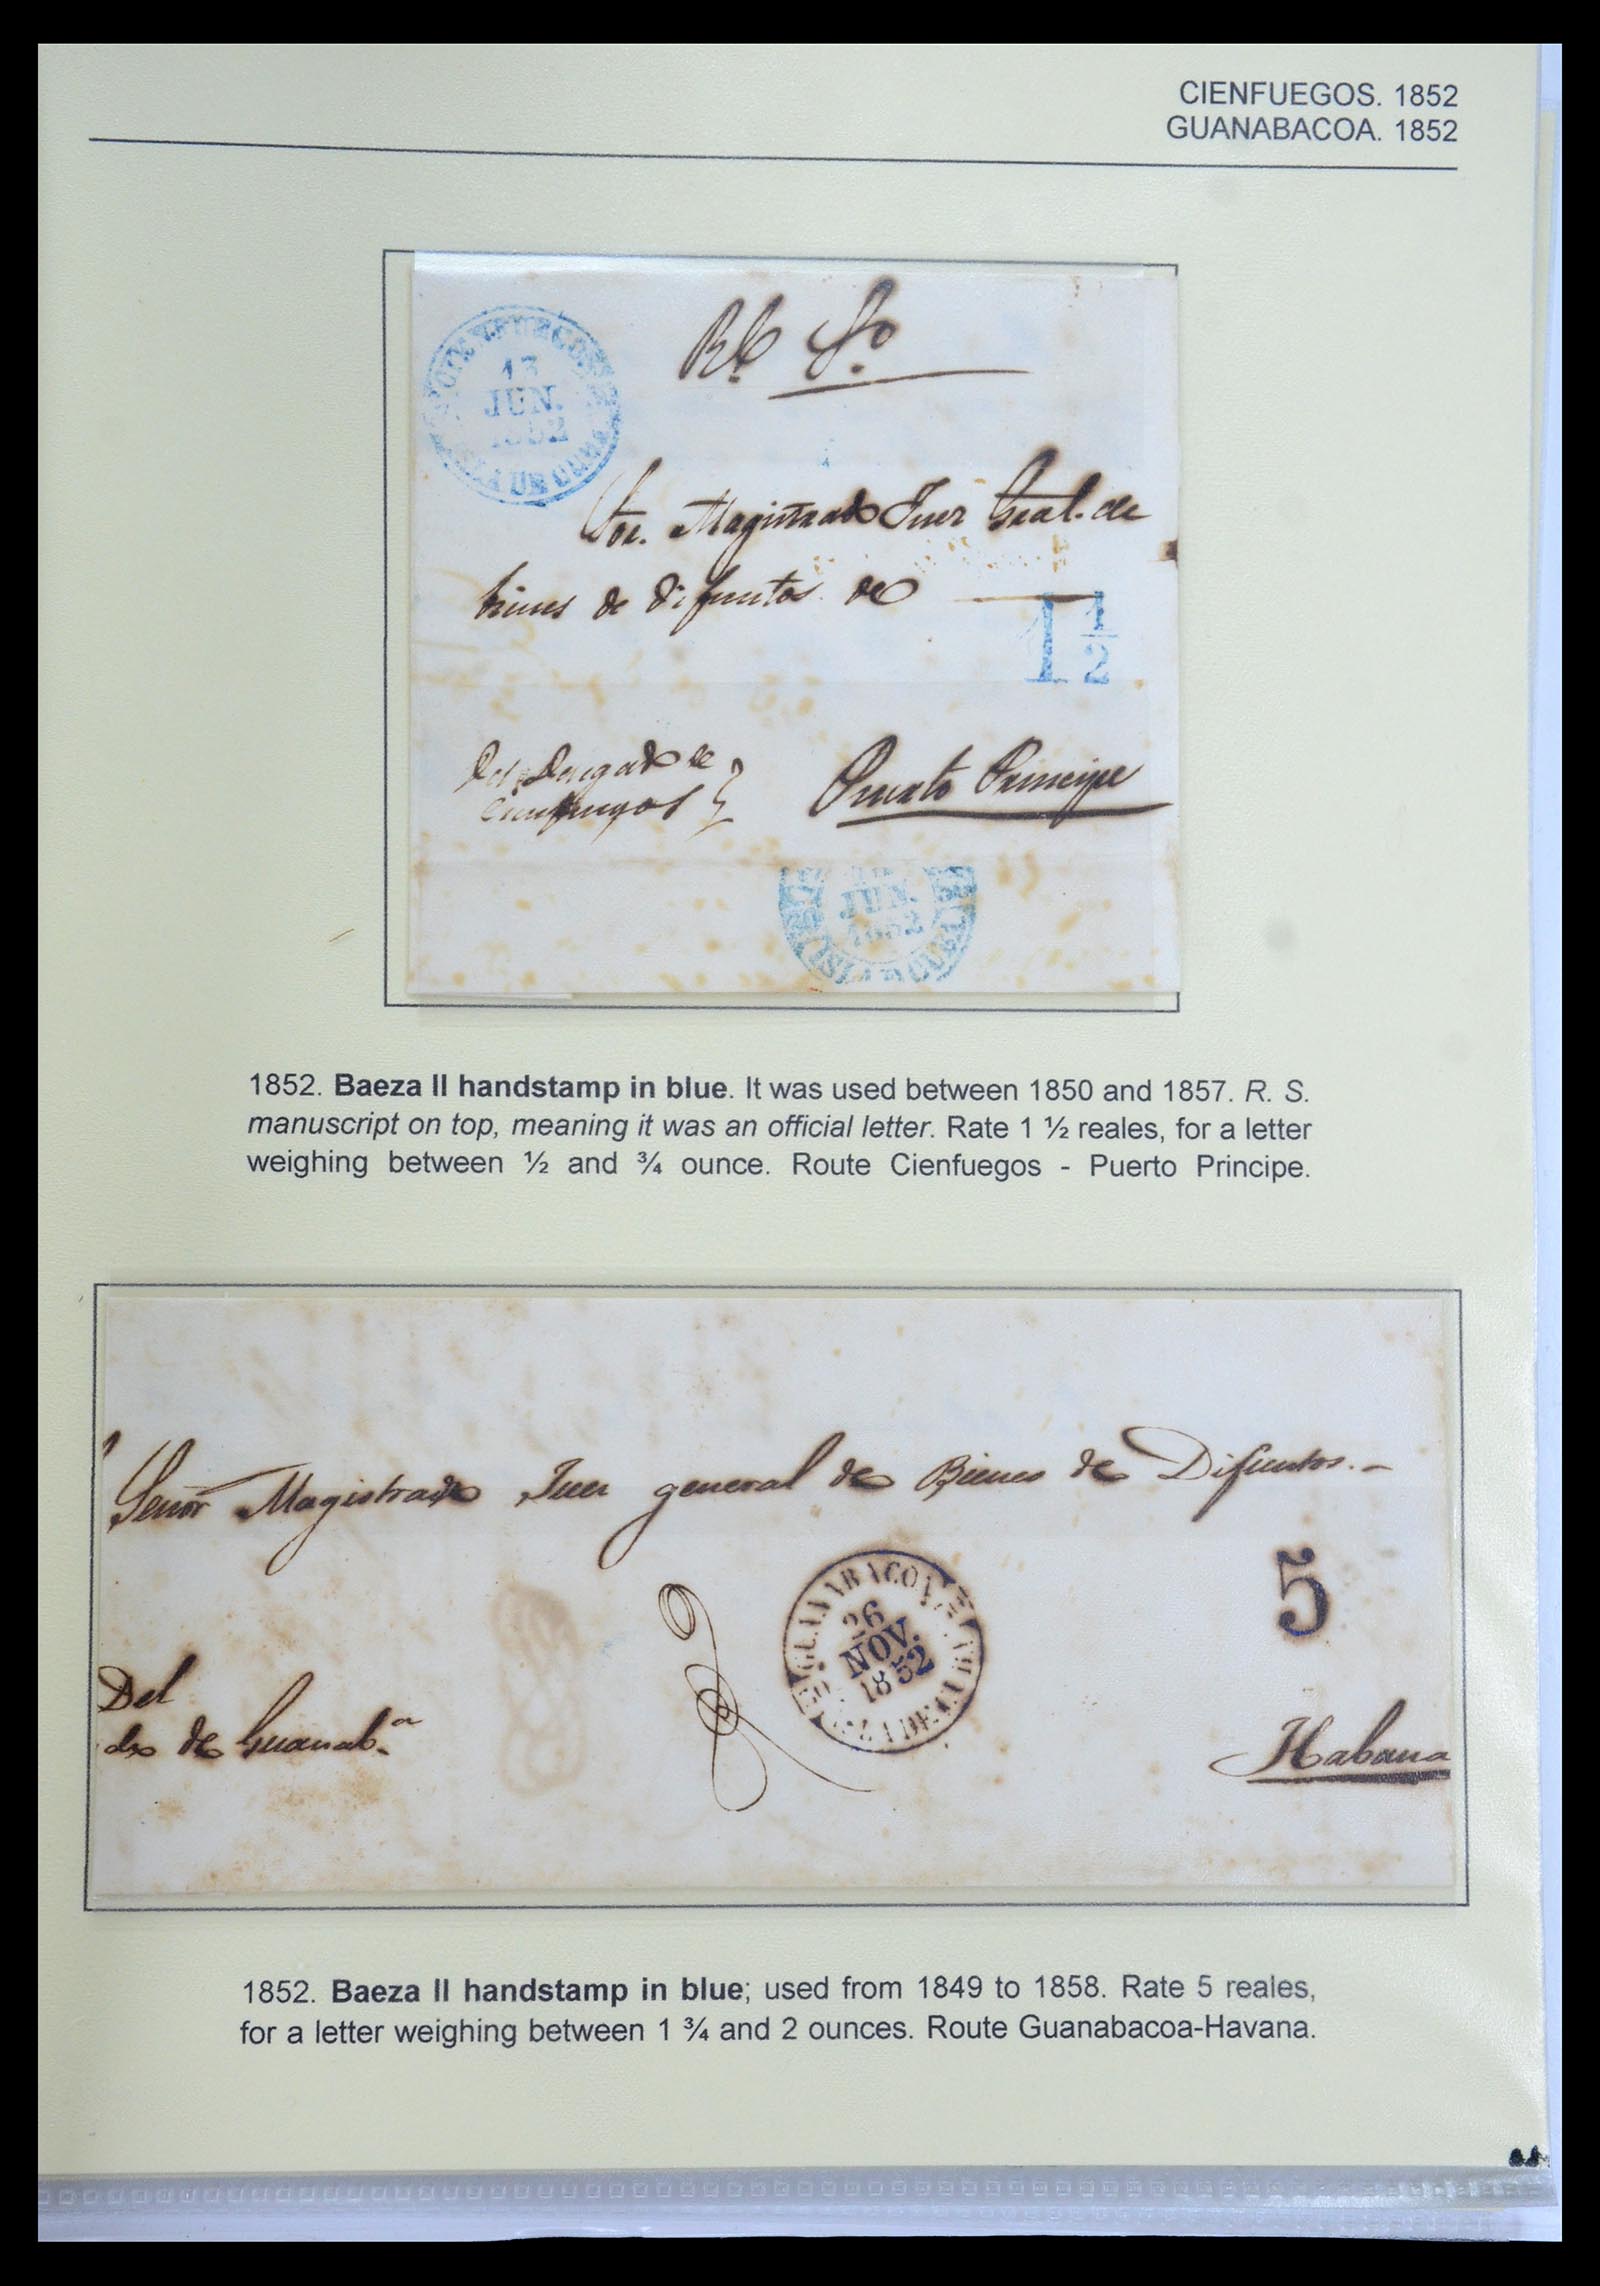 CIENFUEGOS. 1852
GUANABACOA. 1852
CIENFUEGOS
13
JUN.
1852
ISLA DE CUBA
Rl So
Sor. Magistrado Juez Gral. de
bienes de difuntos de
1 1/2
Del Delegado de
Cienfuegos
Puerto Principe
JUN.
1852
ISLA DE CUBA
1852. Baeza II handstamp in blue. It was used between 1850 and 1857. R. S.
manuscript on top, meaning it was an official letter. Rate 1 ½ reales, for a letter
weighing between ½ and ¾ ounce. Route Cienfuegos - Puerto Principe.
Señor Magistrado Juez general de Bienes de Difuntos.-
GUANABACOA
26
NOV.
1852
5
Del
do de Guanab.a
Habana
1852. Baeza II handstamp in blue; used from 1849 to 1858. Rate 5 reales,
for a letter weighing between 1 ¾ and 2 ounces. Route Guanabacoa-Havana.